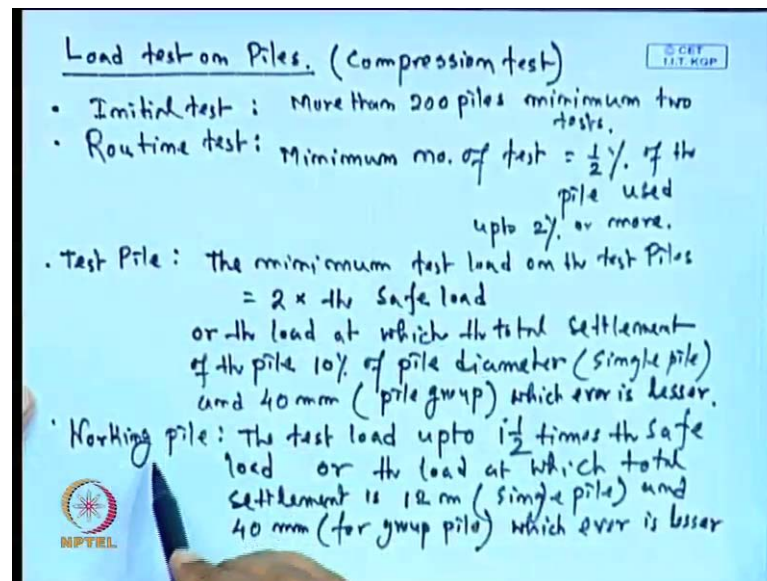 Load test on Piles. (Compression test)
© CET
I.I.T. KGP
• Initial test : More than 200 piles minimum two
tests.
• Routine test : Minimum no. of test = 1/2 %. of the
pile used
upto 2%. or more.
• Test Pile : The minimum test load on the test Piles
= 2 × the safe load
or the load at which the total settlement
of the pile 10% of pile diameter (single pile)
and 40 mm (pile group) which ever is lesser.
• Working pile : The test load upto 1 1/2 times the safe
load or the load at which total
settlement is 12 m (single pile) and
40 mm (for group pile) which ever is lesser
NPTEL